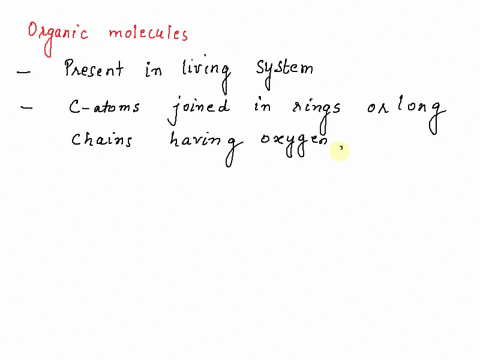 Organic molecules
- Present in living system
- C-atoms joined in rings or long
chains having oxygen,